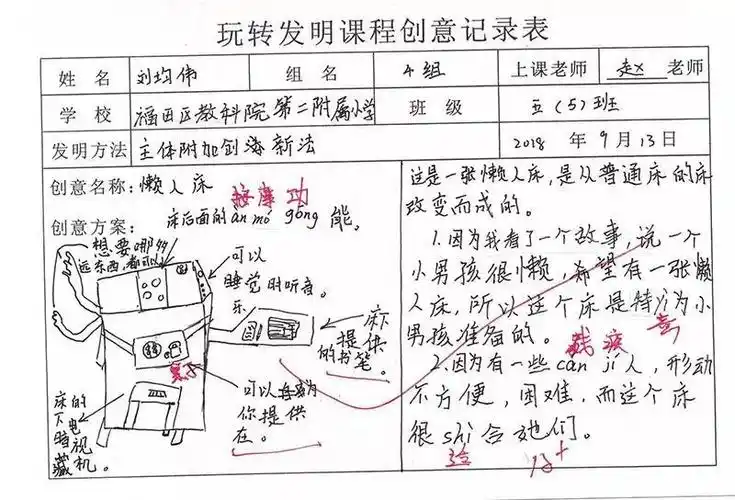 玩转发明课程创意记录表
姓名 刘均伟 组名 4组 上课老师 赵 老师
学校 福田区教科院第二附属小学 班级 五（5）班
发明方法 主体附加创造新法 2018 年 9月13日
创意名称：懒人床
按摩功
创意方案：床后面的àn mó gōng能。
想要哪多
远东西，都可以
可以
睡觉时听音
乐。
床下
提供
的书笔。
可以
你提供
在。
床的
下电
暗视
藏机。
这是一张懒人床，是从普通床的床
改变而成的。
1.因为我看了一个故事，说一个
小男孩很懒，希望有一张懒
人床，所以这个床是特yì为小
男孩准备的。
残疾 意
2.因为有一些cán jí人，形动
不方便，困难，而这个床
很shì合她们。